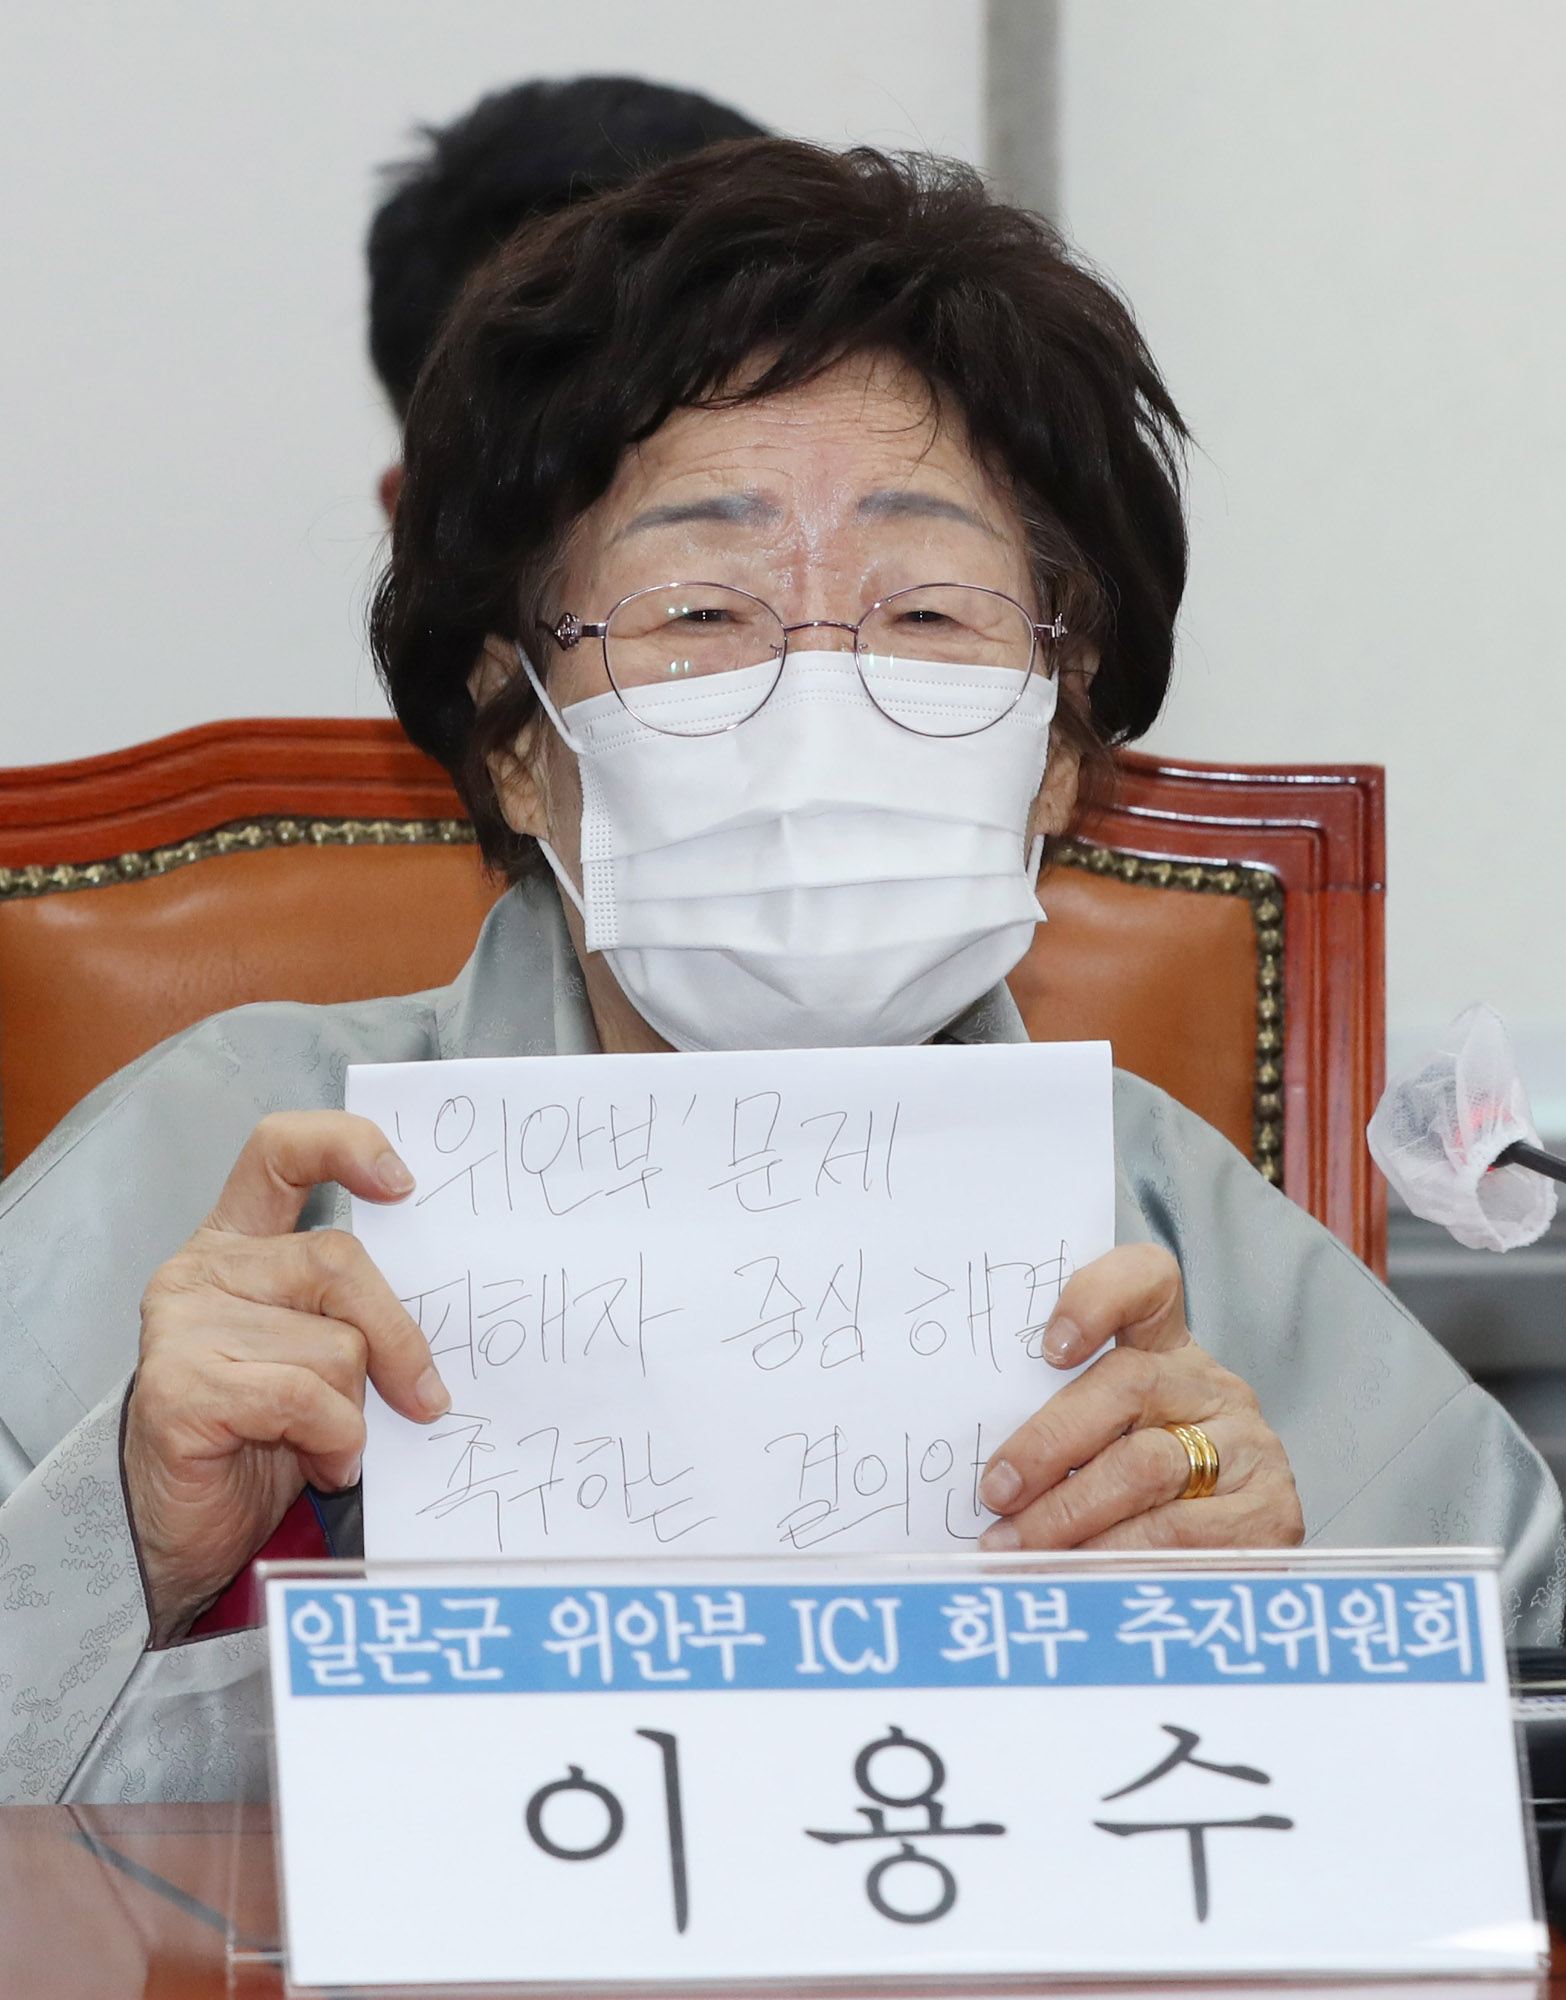 '위안부' 문제
피해자 중심 해결
촉구하는 결의안
일본군 위안부 ICJ 회부 추진위원회
이용수